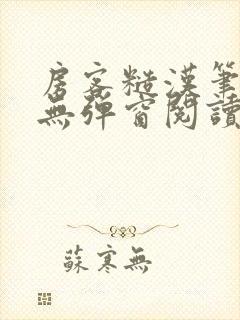 房客糙漢筆
無彈窗閱讀
蘇寒無